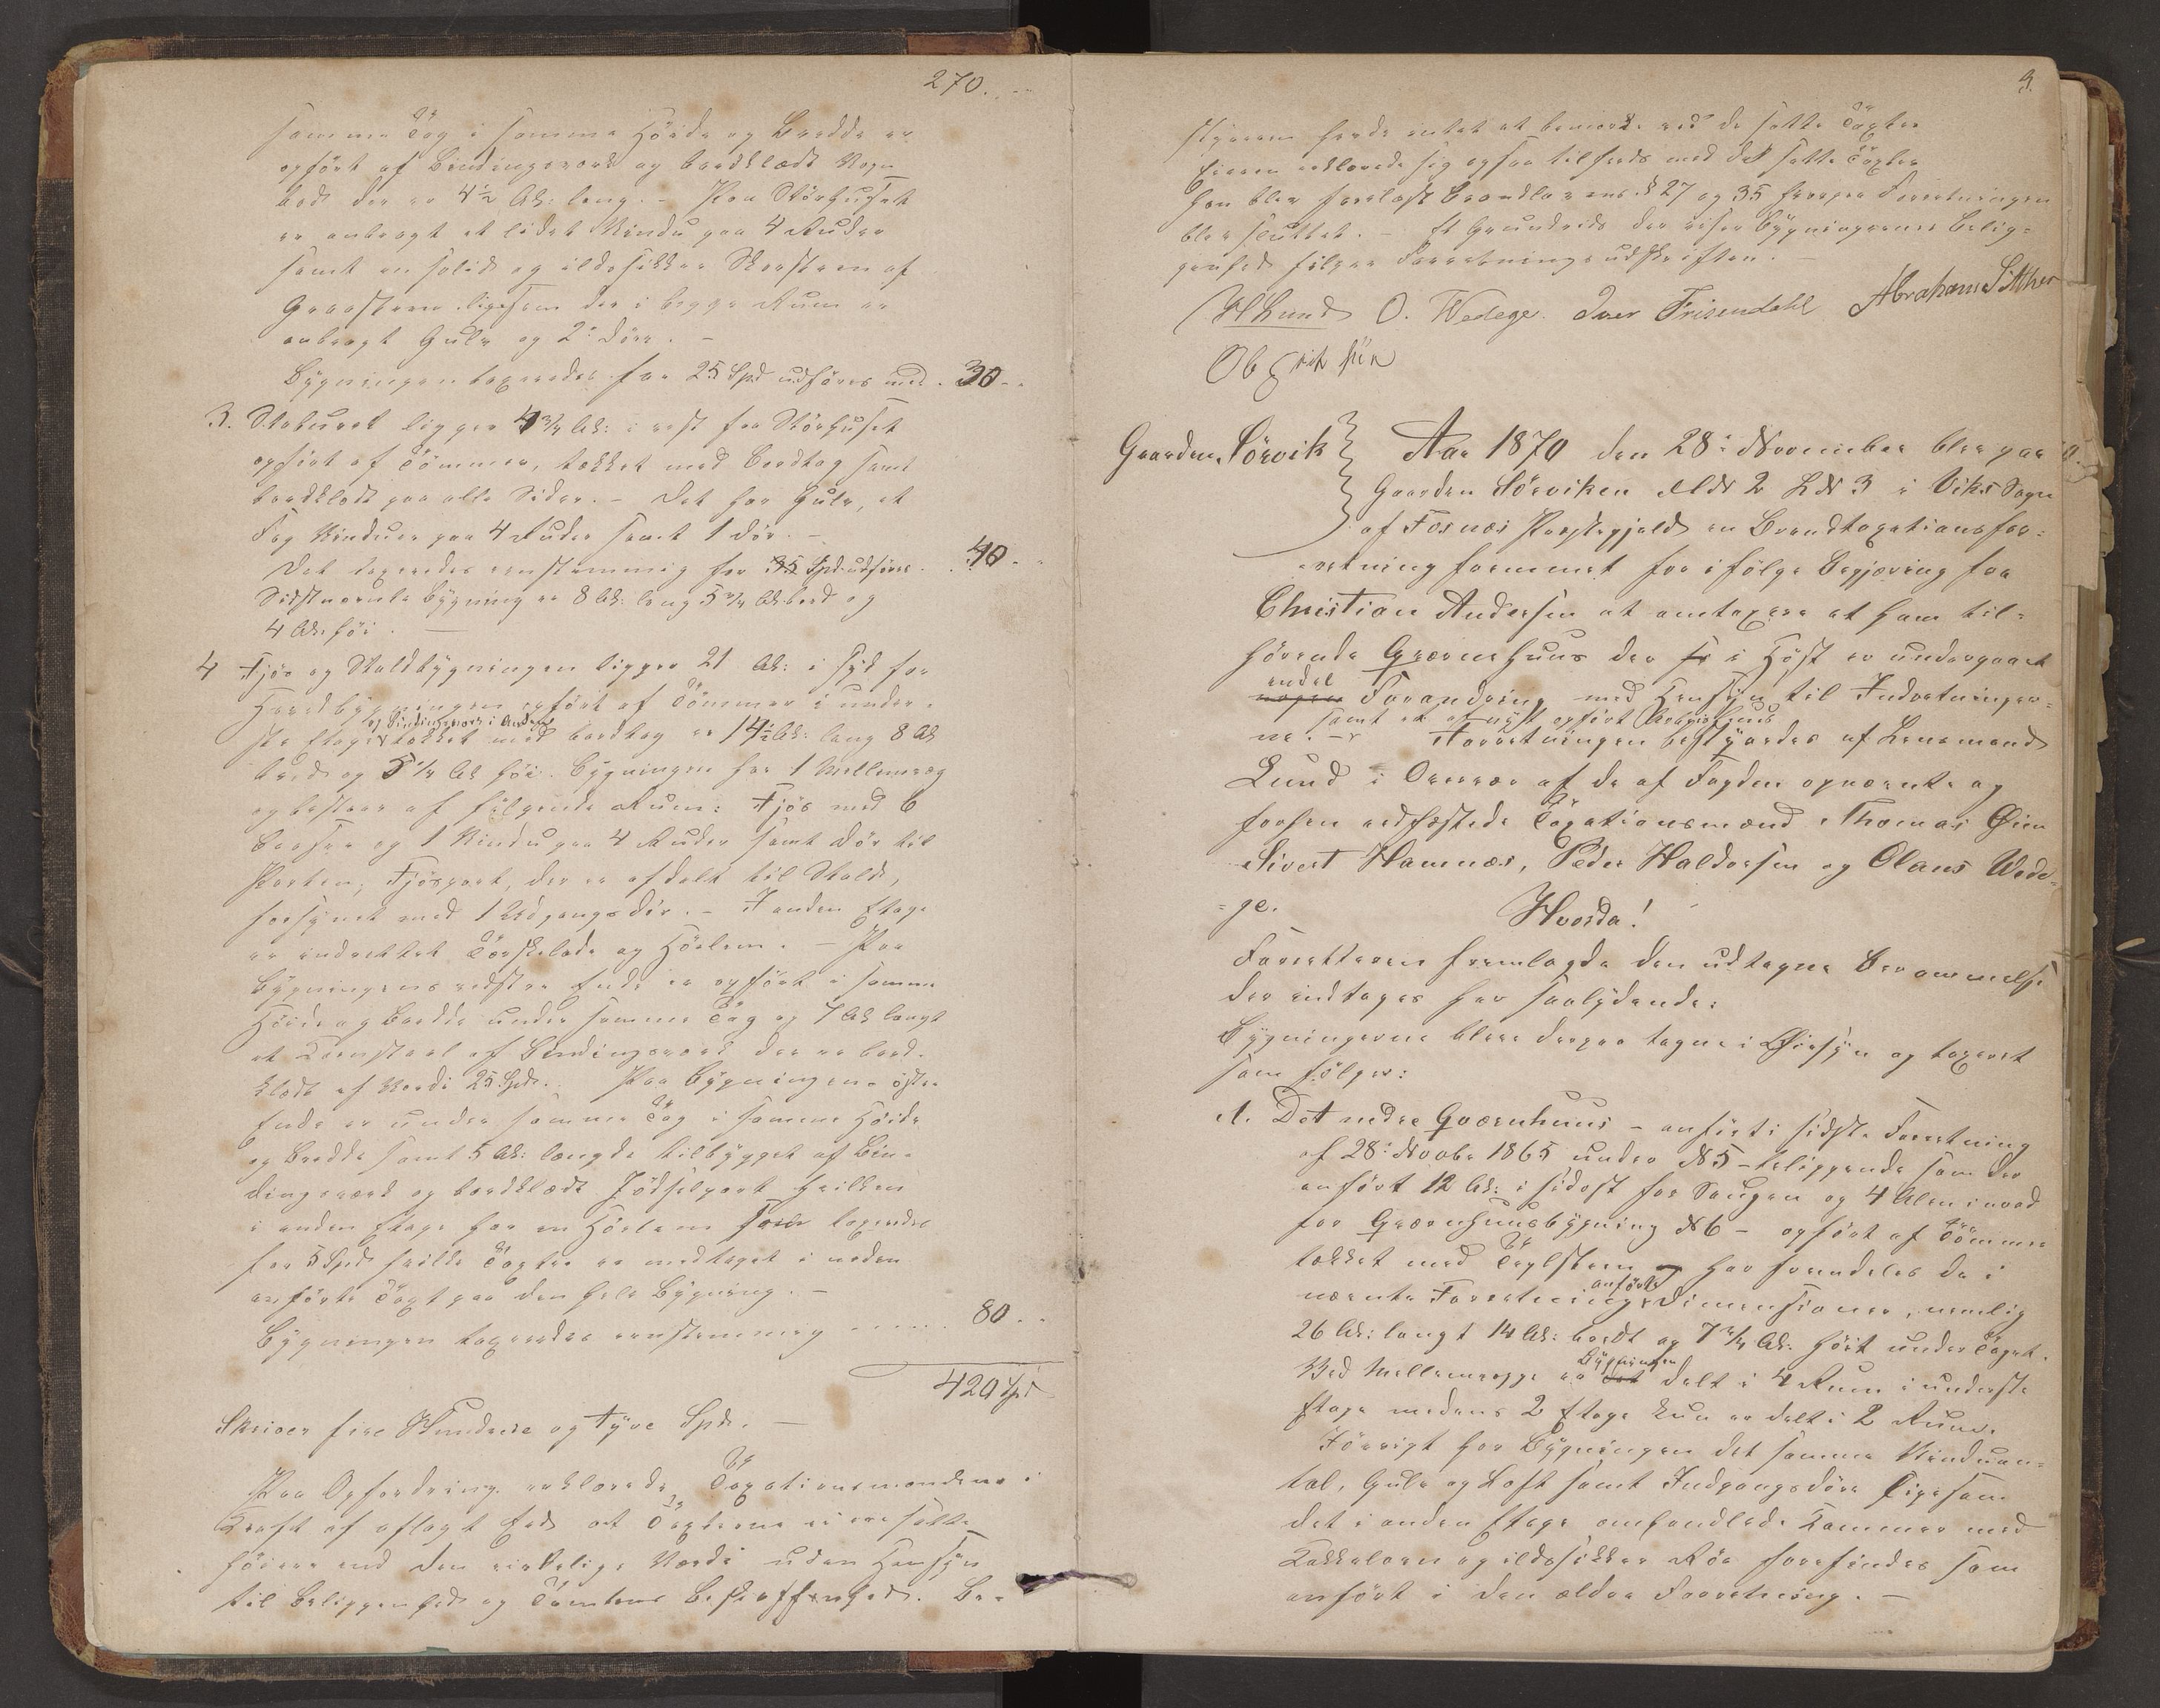 270. „ -
samme Tag i samme Höide og Bredde er
opfört af Bindingsværk og bordklædt Vogn
bod der er 4½ Al: lang. - Paa Störhuset
er anbragt et lidet Vindu paa 4 Ruder
samt en solid og ildsikker Skorsteen af
Graasteen ligesom der i begge Rum er
anbragt Gulv og 2 Döre. -
Bygningen taxeredes for 25 Spd udföres med . 30 - .
3. Staburet ligger 4¾ Al: i vest for Störhuset
opfört af Tömmer, tækket med Bordtag samt
bordklædt paa alle Sider. - Det har Gulv, et
Fag Vinduer paa 4 Ruder samt 1 Dör. -
Det taxeredes eenstemmig for 35 Spd. udföres . 40 - .
Sidstnævnte Bygning er 8 Al: lang 5¾ Al. bred og
4 Al. höi. -
4 Fjös og Staldbygningen ligger 21 Al: i Syd for
Hovedbygningen opfört af Tömmer i under-
og Bindingsværk i Anden
ste Etage tækket med bordtag er 14½ Al: lang 8 Al
bred og 5¼ Al höi. Bygningen har 1 Mellemvæg
og bestaar af fölgende Rum: Fjös med 6
Baaser og 1 Vindu paa 4 Ruder samt Dör til
Porten, Fjösport, der er afdelt til Stald,
forsynet med 1 Udgangsdör. - I anden Etage
er indrettet Tærskelade og Höelem. - Paa
Bygningens vestre Ende er opfört i samme
Höide og Bredde under samme Tag og 7 Al langt
et Kornstaal af Bindingsværk der er bord-
klædt af Værdi 25 Spd. Paa Bygningens östre
Ende er under samme Tag i samme Höide
og Bredde samt 5 Al: længde tilbygget af Bin-
dingsværk og bordklædt Gjödselport hvilken
i anden Etage har en Höelem som taxeredes
for 5 Spd hvilke Taxter er medtaget i neden
anförte Taxt paa den hele Bygning. -
Bygningen taxeredes eenstemmig - - - - 80 . .
420 Spd
Skriver fire Hundrede og tyve Spd. -
Paa Opfordring erklærede Taxationsmændene i
Kraft af aflagt Eed at Taxterne ei ere satte
höiere end den virkelige Værdi uden Hensyn
til Beliggenhed og Tomtens Beskaffenhed. Be-
9.
styreren havde intet at bemærke ved de satte Taxter
Eieren erklærede sig ogsaa tilfreds med de satte Taxter
Han blev forelæst Brandlovens § 27 og 35 hvorpaa Forretningen
blev sluttet. - Et Grundrids der viser Bygningernes Belig-
genhed fölger Forretningsudskriften. -
HLund O. Wedege. Iver Frisendahl Abraham Sitther
Gaarden Sörvik Aar 1870 den 28de November blev paa
Gaarden Sörviken M No 2 L No 3 i Viks Sogn
af Fosnæs Præstegjeld en Brandtaxationsfor-
retning foremmet for ifölge Begjæring fra
Christian Andersen at omtaxere et ham til-
hörende Qværnehuus der i Höst er undergaaet
endel
nogen Forandring med Hensyn til Indretninger-
samt et af nyt opfört
ne. - Forretningen bestyredes af Lensmand
Lund i Overvær af de af Fogden opnævnte og
forhen edfæstede Taxationsmænd Thomas Öien
Sivert Hamnæs, Peder Haldorsen og Olaus Wede-
ge.
Hvorda!
Forretteren fremlagde den udtagne Berammelse
der indtages her saalydende:
Bygningerne bleve derpaa tagne i Öiesyn og taxeret
som fölger:
1. Det nedre Qværnhuus - anfört i sidste Forretning
af 28de Novbr 1865 under No 5 - beliggende som der
anfört 12 Al: i sidost for Saugen og 4 Alen i nord
for Qværnhuusbygning No 6 - opfört af Tömmer
tækket med Teglsteen har fremdeles de i
anförte
nævnte Forretning Dimensioner, nemlig
26 Al: langt 14 Al: bredt og 7¾ Al: höit under Taget.
Bygningen
Ved Mellemvægge er det delt i 4 Rum i underste
Etage medens 2 Etage kun er delt i 2 Rum.
Iövrigt har Bygningen det samme Vinduan-
tal, Gulv og Loft samt Indgangsdöre ligesom
det i anden Etage omhandlede Kammer med
Kakkelovn og ildsikker Rör forefindes som
anfört i den ældre Forretning. -